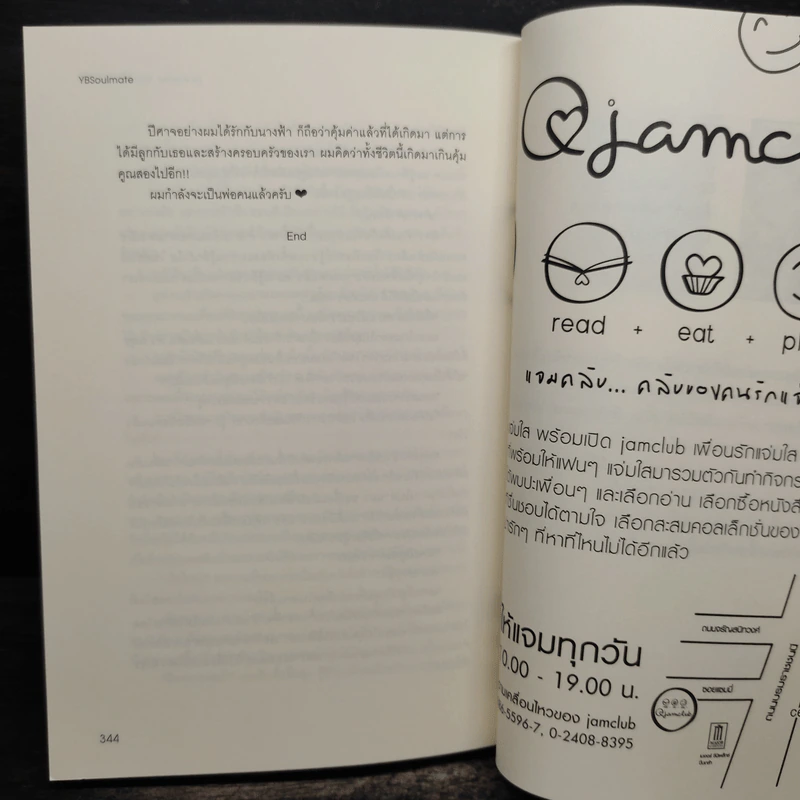 YBSoulmate
ปีศาจอย่างผมได้รักกับนางฟ้า ก็ถือว่าคุ้มค่าแล้วที่ได้เกิดมา แต่การ
ได้มีลูกกับเธอและสร้างครอบครัวของเรา ผมคิดว่าทั้งชีวิตนี้เกิดมาเกินคุ้ม
คูณสองไปอีก!!
ผมกำลังจะเป็นพ่อคนแล้วครับ ❤
End
344
jamc
read + eat + pl
แจมคลับ... คลับของคนรักแจ
แจ่มใส พร้อมเปิด jamclub เพื่อนรักแจ่มใส
ที่พร้อมให้แฟนๆ แจ่มใสมารวมตัวกันทำกิจกร
พบปะเพื่อนๆ และเลือกอ่าน เลือกซื้อหนังสื
ชื่นชอบได้ตามใจ เลือกสะสมคอลเล็กชั่นของ
น่ารักๆ ที่หาที่ไหนไม่ได้อีกแล้ว
ให้แจมทุกวัน
0.00 - 19.00 น.
ามเคลื่อนไหวของ jamclub
66-5596-7, 0-2408-8395
ถนนจรัญสนิทวงศ์
ซอยแซมมี่
jamclub